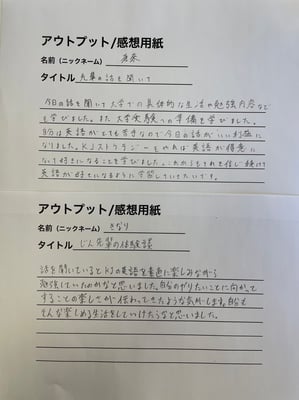 アウトプット/感想用紙
名前（ニックネーム）
タイトル 先輩の話を聞いて
今日の話を聞いて大学での具体的な生活や勉強内容など
を学びました。また大学受験への準備を学びました。
自分は英語がとても苦手なので今日の話がいい刺激に
なりました。KJストラテジーをやれば英語が得意に
なって好きになることを学びました。これからもそれを信じ続けて
英語が好きになるように学習していきたいです。
アウトプット/感想用紙
名前（ニックネーム） きなり
タイトル じん先輩の体験談
話を聞いているとKJの英語を素直に楽しみながら
勉強していたのかなと思いました。自分のやりたいことに向かって
することの楽しさが伝わってきたような気がします。自分も
そんな楽しめる生活をしていけたらなと思いました。